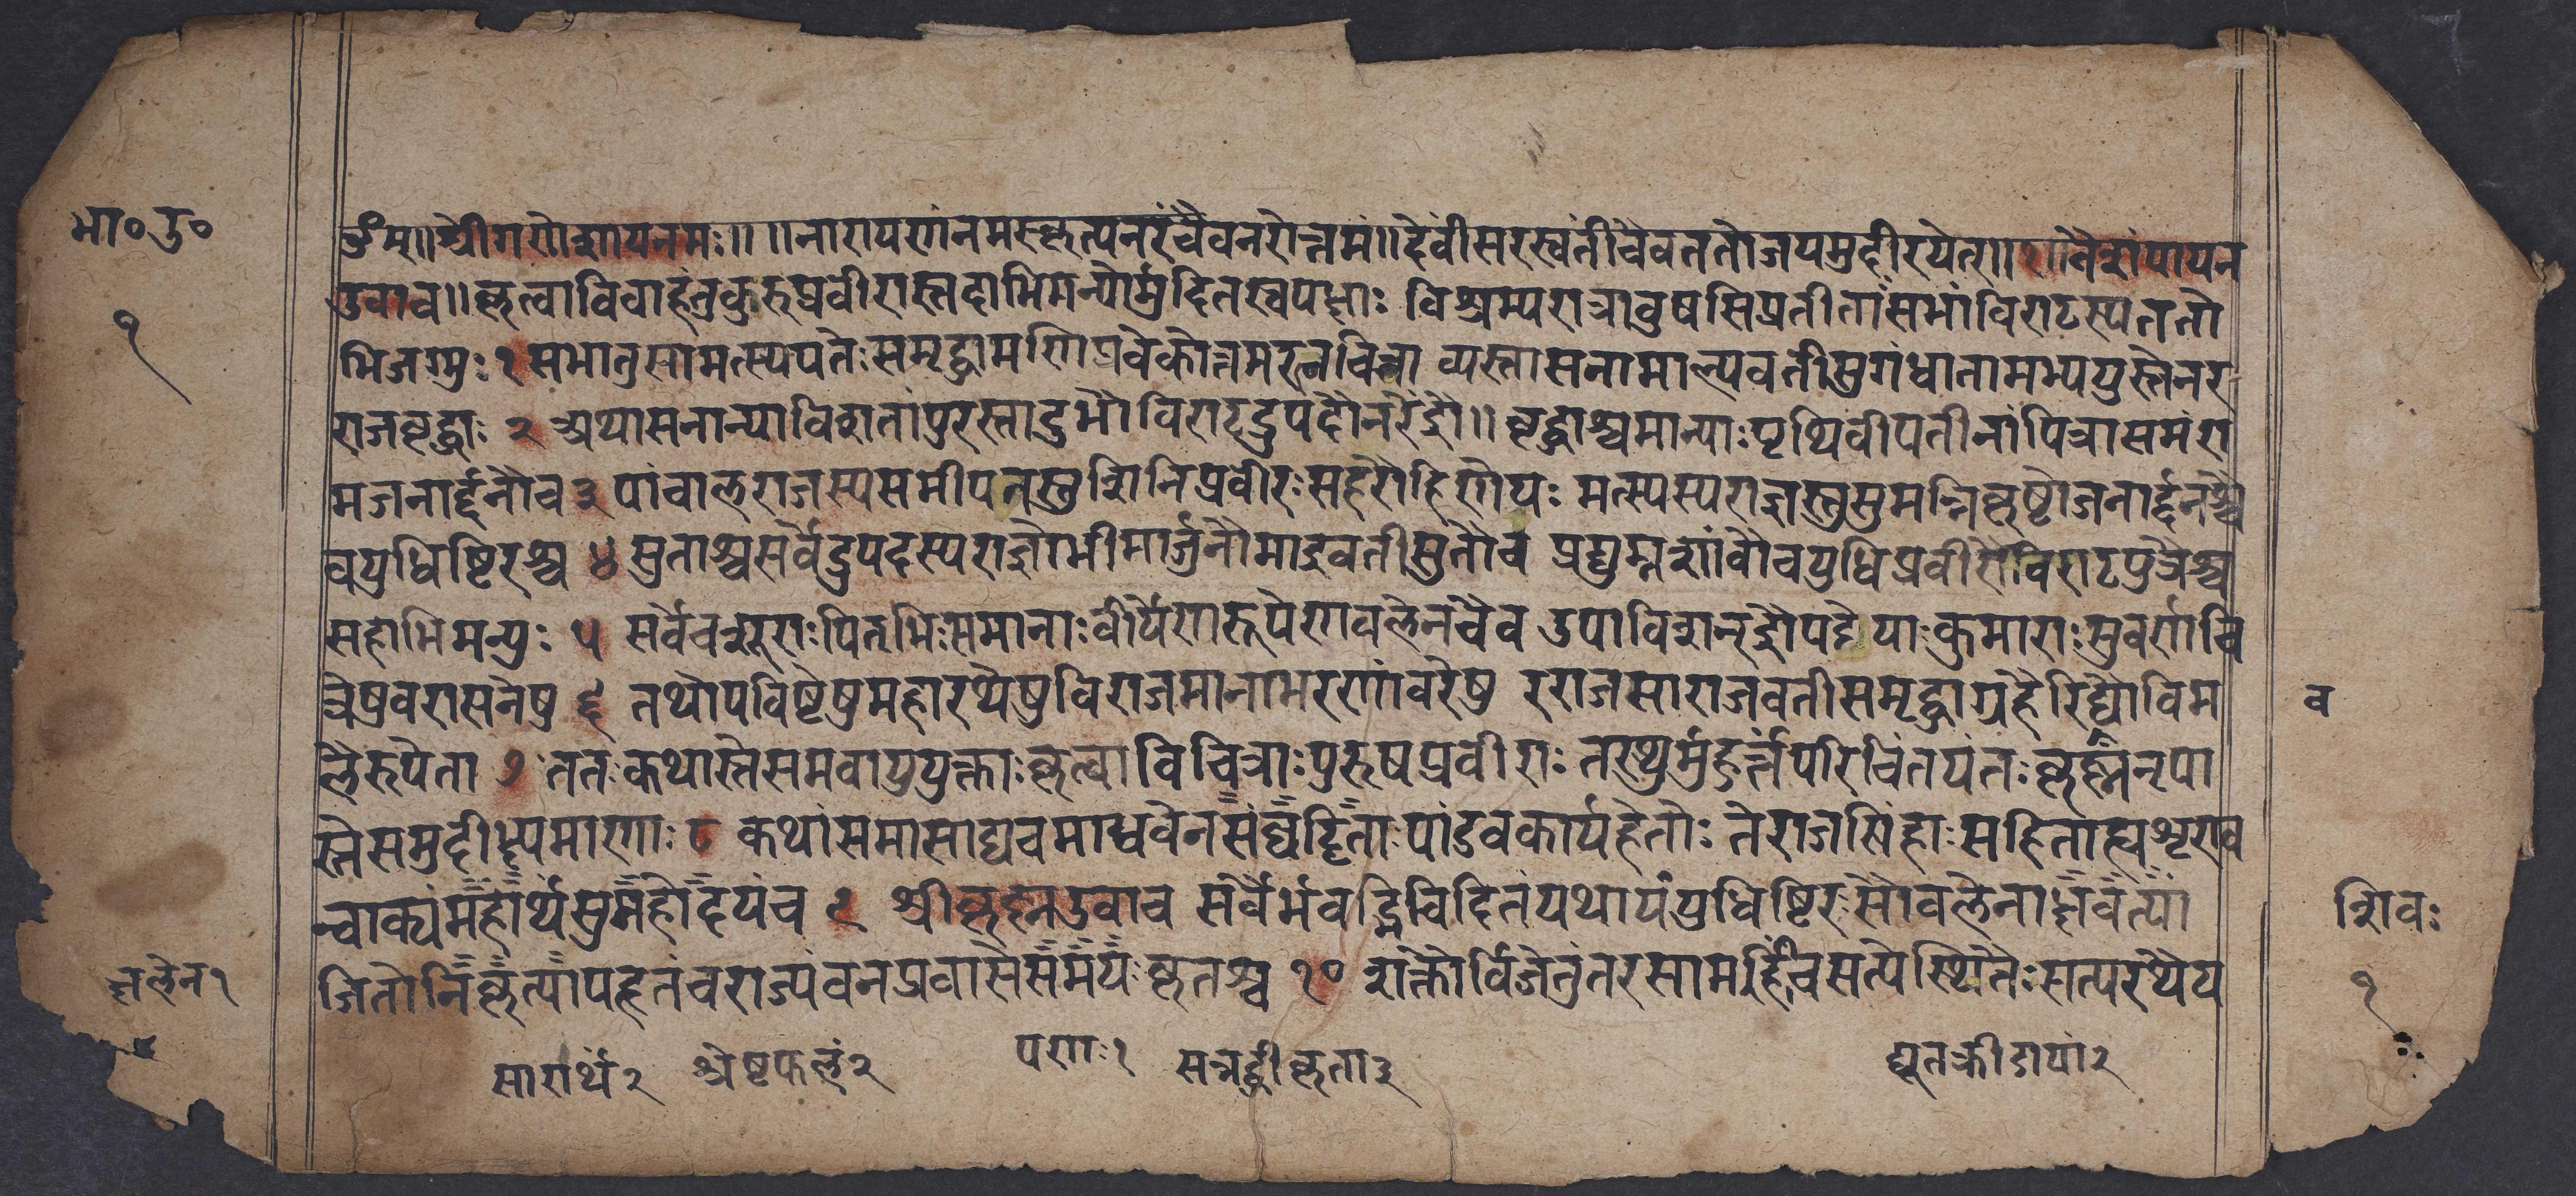 भा॰उ॰
१
ॐम्॥श्रीगणेशायनमः॥ ॥नारायणंनमस्कृत्यनरंचैवनरोत्तमं॥देवींसरस्वतींचैवततोजयमुदीरयेत्॥१॥वैशंपायन
उवाच॥कृत्वाविवाहंतुकुरुप्रवीरास्तदाभिमन्योर्मुदितस्वपक्षाः विश्रम्यरात्रावुषसिप्रतीतांसभांविराटस्यततो
भिजग्मुः १ सभातुसामत्स्यपतेःसमृद्धामणिप्रवेकोत्तमरत्नचित्रा न्यस्तासनामाल्यवतीसुगंधातामभ्ययुस्तेनर
राजवृद्धाः २ अथासनान्याविशतांपुरस्तादुभौविराटद्रुपदौनरेंद्रौ॥ वृद्धाश्चमान्याःपृथिवीपतीनांपित्रासमंरा
मजनार्द्दनौच ३ पांचालराजस्यसमीपतस्तुशिनिप्रवीरःसहरौहिणेयः मत्स्यस्यराज्ञस्तुसुसन्निकृष्टोजनार्द्दनश्चै
वयुधिष्टिरश्च ४ सुताश्चसर्वेद्रुपदस्यराज्ञोभीमार्जुनौमाद्रवतीसुतौच प्रद्युम्नशांबौचयुधिप्रवीरौविराटपुत्रैश्च
सहाभिमन्युः ५ सर्वेचशूराःपितृभिःसमानाःवीर्येणरूपेणबलेनचैव उपाविशन्द्रौपदेयाःकुमाराःसुवर्णचि
त्रेषुवरासनेषु ६ तथोपविष्टेषुमहारथेषुविराजमानाभरणांबरेषु रराजसाराजवतीसमृद्धाग्रहैरिवद्यौर्विम
लैरुपेता ७ ततःकथास्तेसमवाययुक्ताःकृत्वाविचित्राःपुरुषप्रवीराः तस्थुर्मुहूर्त्तंपरिचिंतयंतःकृष्णंनृपा
स्तेसमुदीक्ष्यमाणाः ८ कथांसमासाद्यचमाधवेनसंघट्टिताःपांडवकार्यहेतोः तेराजसिंहाःसहिताह्यशृण्व
न्वाक्यंमहार्थंसुमहोदयंच ९ श्रीकृष्णउवाच सर्वैर्भवद्भिर्विदितंयथायंयुधिष्टिरःसौबलेनाक्षवत्यां
जितोनिकृत्यापहृतंचराज्यंवनप्रवासेसमयःकृतश्च १० शक्तैर्विजेतुंतरसामहींचसत्येस्थितैःसत्यरथैर्य
व
शिवः
१
छलेन१
सारार्थं२ श्रेष्टफलं२ पणः१ सन्नद्धीकृता३ द्यूतक्रीडायां२